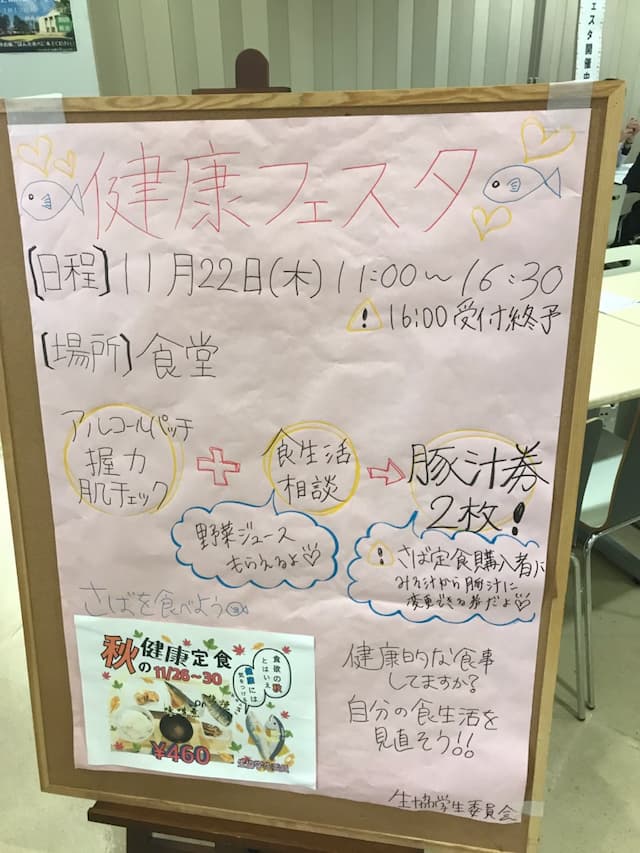 健康フェスタ
[日程] 11月22日(木) 11:00〜16:30
16:00受付終予
[場所] 食堂
アルコールパッチ
握力
肌チェック
+
食生活
相談
→
豚汁券
2枚!
野菜ジュース
もらえるよ♡
さば定食購入者に
みそ汁から豚汁に
変更できる券だよ♡
さばを食べよう
秋の健康定食
11/26〜30
食欲の秋
とはいえ
健康には
¥460
健康的な食事
してますか?
自分の食生活を
見直そう!!
生協学生委員会
フェスタ開催中